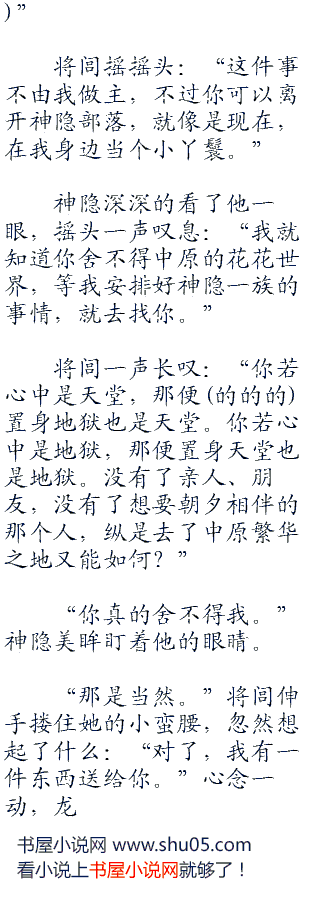 )”
将闾摇摇头：“这件事
不由我做主，不过你可以离
开神隐部落，就像是现在，
在我身边当个小丫鬟。”
神隐深深的看了他一
眼，摇头一声叹息：“我就
知道你舍不得中原的花花世
界，等我安排好神隐一族的
事情，就去找你。”
将闾一声长叹：“你若
心中是天堂，那便(的的的)
置身地狱也是天堂。你若心
中是地狱，那便置身天堂也
是地狱。没有了亲人、朋
友，没有了想要朝夕相伴的
那个人，纵是去了中原繁华
之地又能如何？”
“你真的舍不得我。”
神隐美眸盯着他的眼睛。
“那是当然。”将闾伸
手搂住她的小蛮腰，忽然想
起了什么：“对了，我有一
件东西送给你。”心念一
动，龙
书屋小说网 www.shu05.com
看小说上书屋小说网就够了！